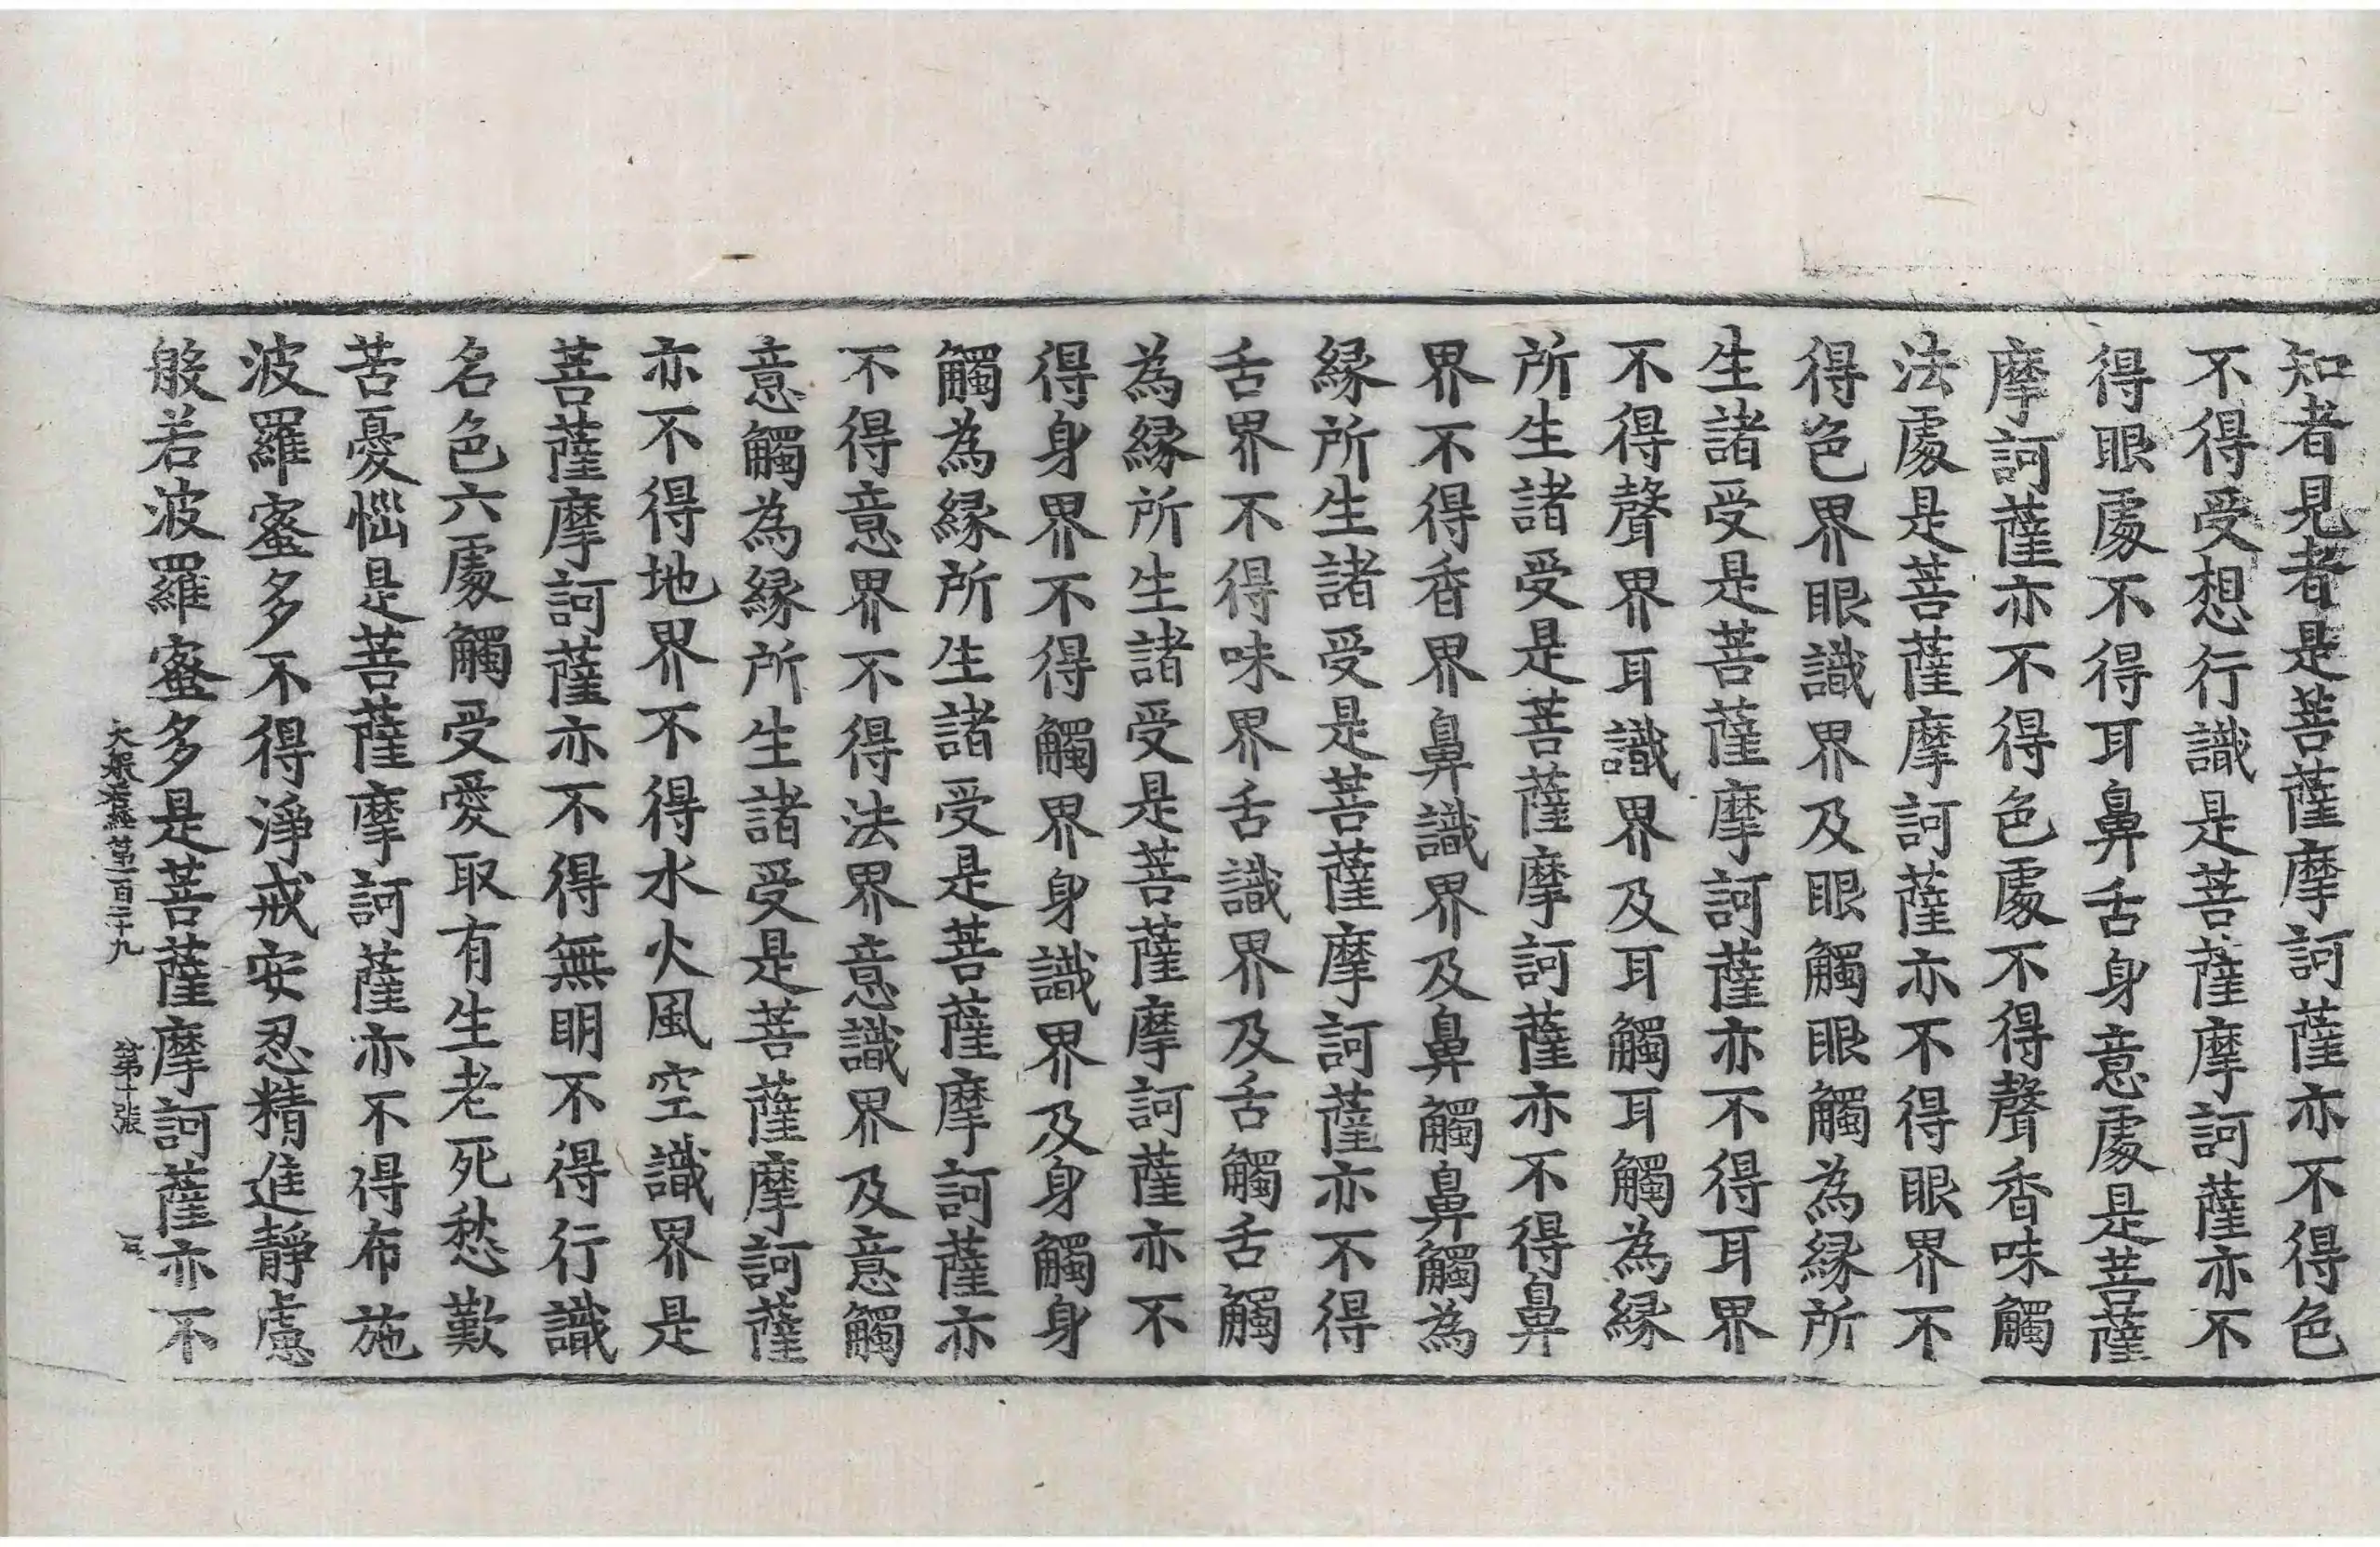 知者見者是菩薩摩訶薩亦不得色
不得受想行識是菩薩摩訶薩亦不
得眼處不得耳鼻舌身意處是菩薩
摩訶薩亦不得色處不得聲香味觸
法處是菩薩摩訶薩亦不得眼界不
得色界眼識界及眼觸眼觸為緣所
生諸受是菩薩摩訶薩亦不得耳界
不得聲界耳識界及耳觸耳觸為緣
所生諸受是菩薩摩訶薩亦不得鼻
界不得香界鼻識界及鼻觸鼻觸為
緣所生諸受是菩薩摩訶薩亦不得
舌界不得味界舌識界及舌觸舌觸
為緣所生諸受是菩薩摩訶薩亦不
得身界不得觸界身識界及身觸身
觸為緣所生諸受是菩薩摩訶薩亦
不得意界不得法界意識界及意觸
意觸為緣所生諸受是菩薩摩訶薩
亦不得地界不得水火風空識界是
菩薩摩訶薩亦不得無明不得行識
名色六處觸受愛取有生老死愁歎
苦憂惱是菩薩摩訶薩亦不得布施
波羅蜜多不得淨戒安忍精進靜慮
般若波羅蜜多是菩薩摩訶薩亦不
大般若經第一百二十九 第十張